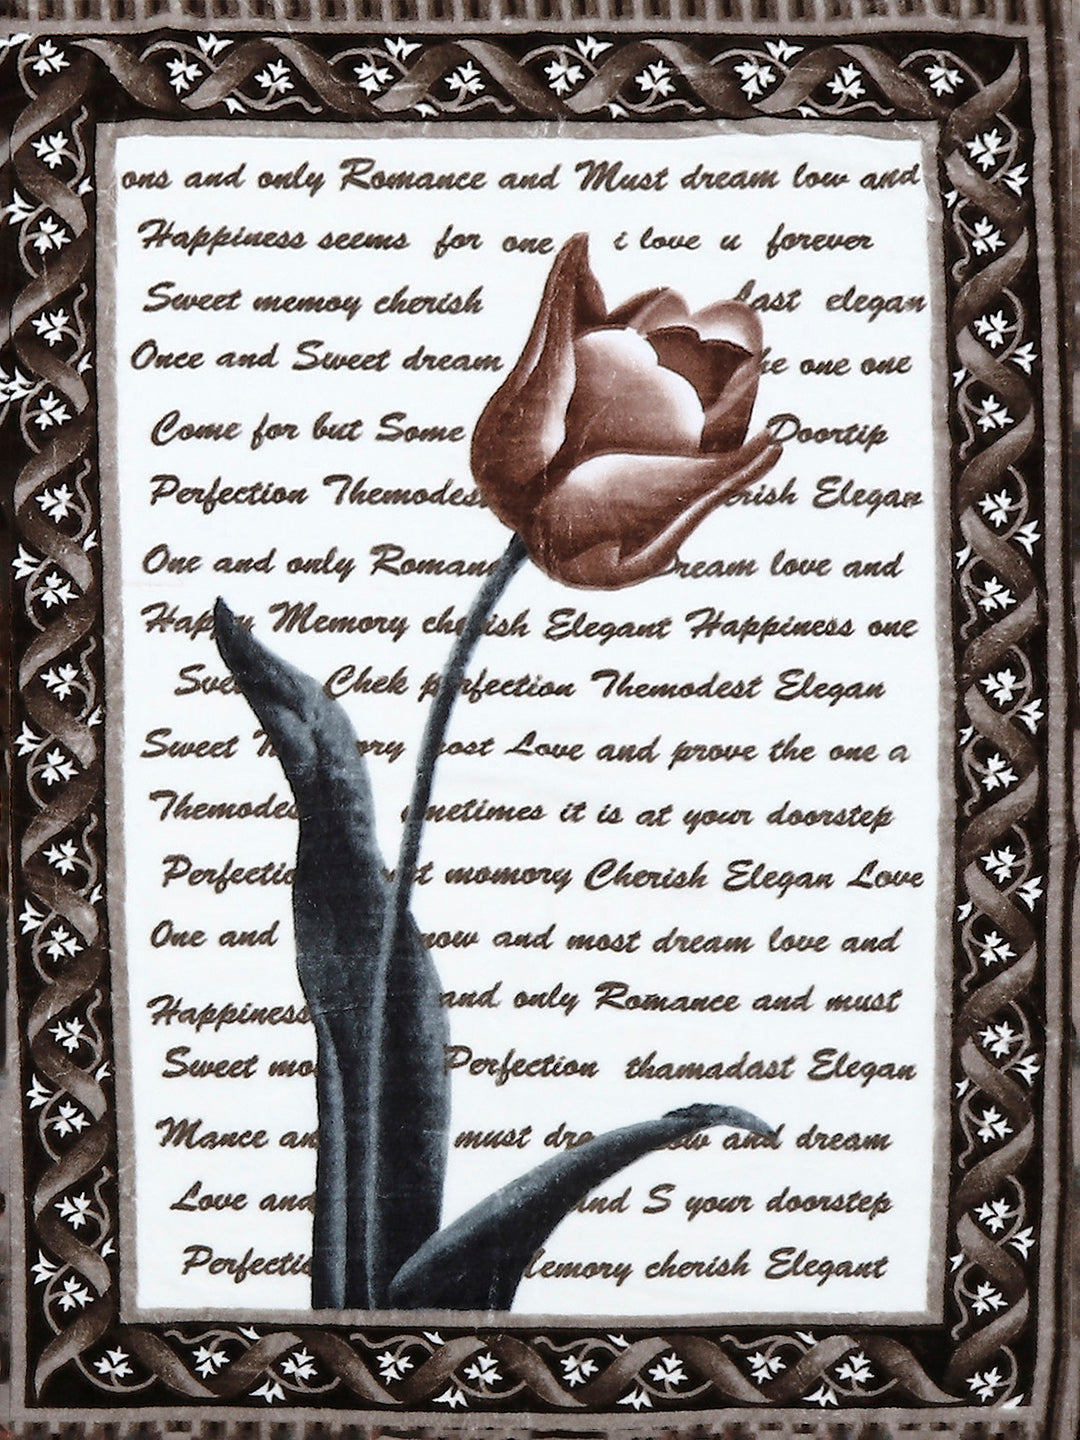 ons and only Romance and Must dream low and
Happiness seems for one i love u forever
Sweet memoy cherish last elegan
Once and Sweet dream he one one
Come for but Some Doortip
Perfection Themodes erish Elegan
One and only Roman Dream love and
Happy Memory cherish Elegant Happiness one
Swe Chek perfection Themodest Elegan
Sweet M ory post Love and prove the one a
Themodes ometimes it is at your doorstep
Perfectio t momory Cherish Elegan Love
One and now and most dream love and
Happiness and only Romance and must
Sweet mo Perfection thamadast Elegan
Mance an must dre ow and dream
Love and and S your doorstep
Perfectio emory cherish Elegant